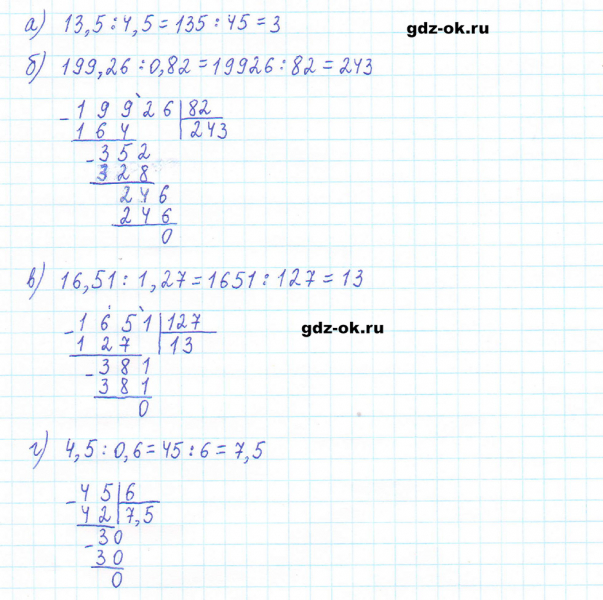 а) 13,5 : 4,5 = 135 : 45 = 3
gdz-ok.ru
б) 199,26 : 0,82 = 19926 : 82 = 243
- 1 9 9 2 6 | 82
1 6 4 | 243
- 3 5 2
3 2 8
2 4 6
2 4 6
0
в) 16,51 : 1,27 = 1651 : 127 = 13
- 1 6 5 1 | 127
1 2 7 | 13
gdz-ok.ru
- 3 8 1
3 8 1
0
г) 4,5 : 0,6 = 45 : 6 = 7,5
- 4 5 | 6
4 2 | 7,5
- 3 0
3 0
0